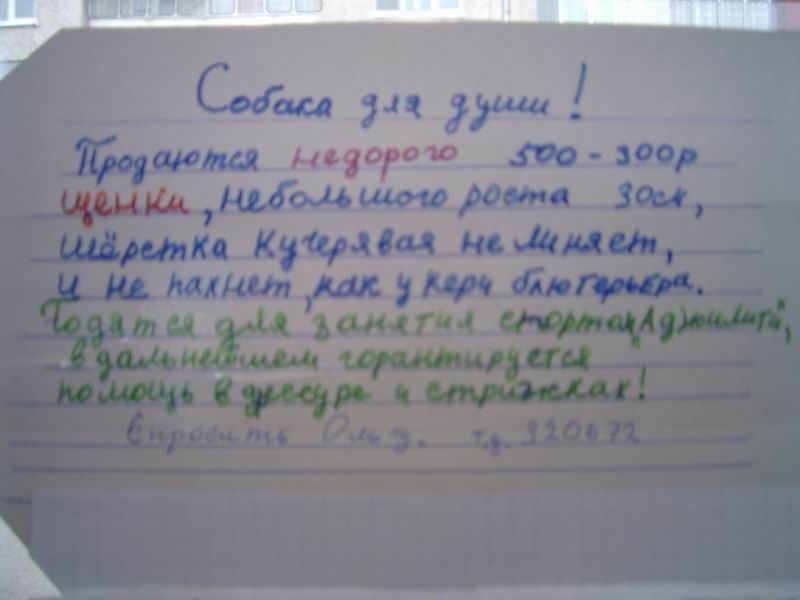 Собака для души!
Продаются недорого 500-300р
щенки, небольшого роста 30см,
шёрстка кучерявая не линяет,
и не пахнет, как у кери блютерьера.
Годятся для занятия спортом "Аджилити",
в дальнейшем горантируется
помощь в дрессуре и стрижках!
Спросить Ольгу. т.д. 320672